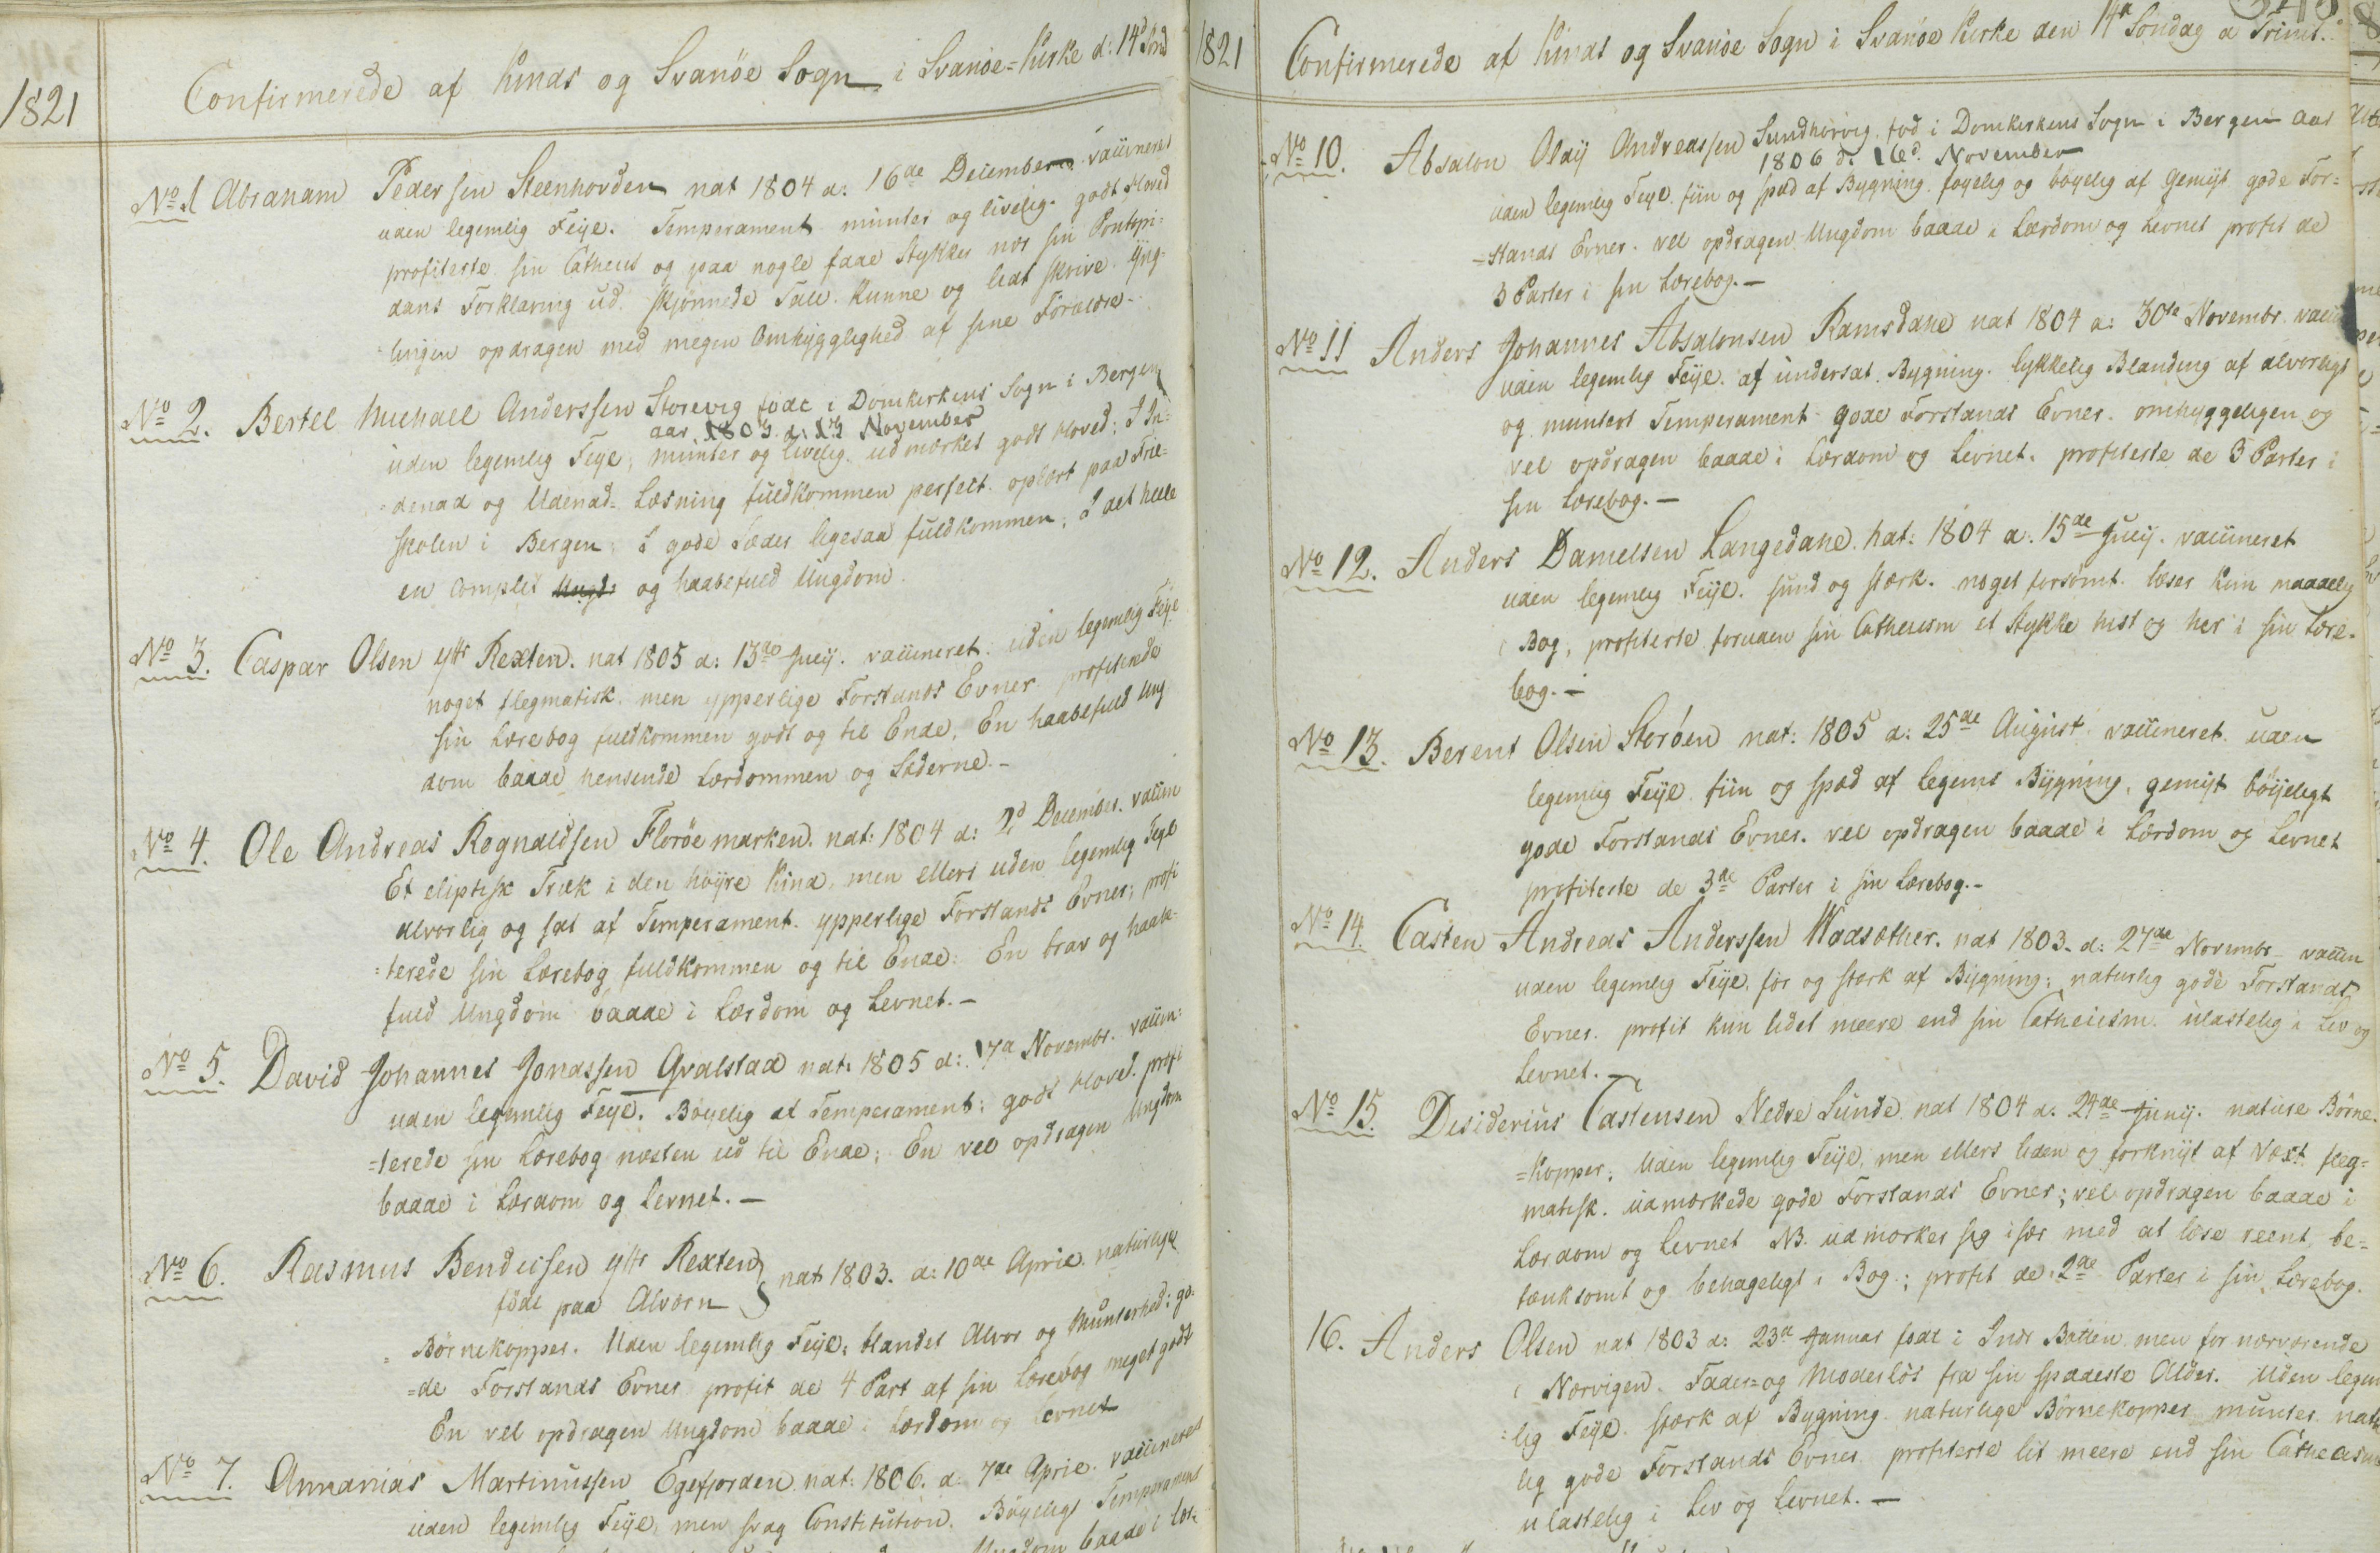 1821
Confirmerede af Kinds og Svanöe Sogn i Svanöe=Kirke d: 14d Sönd
No 1 Abraham Pedersen Steenhovden nat 1804 d: 16de December vaccineret
uden legemlig Feyl. Temperament munter og livelig. godt Hoved
profiterte sin Cathecis og paa nogle faae Stykker nær sin Pontopi=
dans Forklaring ud. skjönnede Tall. Kunne og lidt skrive. Yng=
lingen opdragen med megen Omhygglighed af sine Forældre.
No 2. Bertel Michael Anderssen Storevig född i Domkirkens Sogn i Bergen
aar 1803. d: 13 November
uden legemlig Feyl, munter og livelig. udmærket godt Hoved; I In=
=denad og Udenad=Læsning fuldkommen perfect. oplært paa Frie=
skolen i Bergen; I gode Sæder ligesaa fuldkommen; I det hele
en complet Ungd: og haabefuld Ungdom.
No 3. Caspar Olsen yttr Rexten. nat 1805 d: 13de July. vaccineret. uden legemlig Feyl
noget flegmatisk. men ypperlige Forstands Evner profiterede
sin Lærebog fuldkommen godt og til Ende. En haabefuld Ung
dom baade hensende Lærdommen og Sæderne.-
No 4. Ole Andreas Rognaldsen Floröemarken. nat: 1804 d: 2d December. vaccin
Et eliptisk Træk i den höyre Kind, men ellers uden legemlig Feyl
alvorlig og sat af Temperament. ypperlige Forstands Evner; profi
=terede sin Lærebog fuldkommen og til Ende: En brav og haabe=
fuld Ungdom baade i Lærdom og Levnet.-
No 5. David Johannes Jonassen Qvalstad nat: 1805 d: 17d Novembr. vaccin:
uden legemlig Feyl. Böyelig af Temperament; godt Hoved. profi
=terede sin Lærebog næsten ud til Ende; En vel opdragen Ungdom
baade i Lærdom og Levnet.-
No 6. Rasmus Bendixsen yttr Rexten } nat 1803. d: 10de April. naturlige
född paa Alværn
= Börnekopper. Uden legemlig Feyl; blandet Alvor og Munterhed; go=
=de Forstands Evner profit de 4 Part af sin Lærebog meget godt
En vel opdragen Ungdom baade i Lærdom og Levnet
No 7. Annanias Martinussen Egefjorden. nat: 1806. d: 7de April. vaccineret
uden legemlig Feyl, men svag Constitution. Böyeligt Temperament
Ungdom baade i Lær=
1821
Confirmerede af Kinds og Svanöe Sogn i Svanöe Kirke den 14d Söndag a Trinit.
No 10. Absalon Olaij Andreassen Sundhorvig. föd i Domkirkens Sogn i Bergen Aar
1806 d: 16d. November
uden legemlig Feyl. fiin og spæd af Bygning. föyelig og böyelig af Gemyt gode For=
=stands Evner. vel opdragen Ungdom baade i Lærdom og Levnet profit de
3 Parter i sin Lærebog.-
No 11 Anders Johannes Absalonsen Ramsdahl nat 1804 d: 30te Novembr. vacci
uden legemlig Feyl. af undersat Bygning. lykkelig Blanding af alvorligt
og muntert Temperament gode Forstands Evner. omhyggeligen og
vel opdragen baade i Lærdom og Levnet. profiterte de 3 Parter i
sin Lærebog.-
No 12. Anders Danielsen Langedahl. nat: 1804 d. 15de July. vaccineret
uden legemlig Feyl. sund og stærk. noget forsömt. læser kun maadelig
i Bog, profiterte foruden sin Cathecism et Stykke hist og her i sin Lære=
bog.-
No 13. Berent Olsen Storöen nat: 1805 d: 25de August. vaccineret uden
legemlig Feyl. fiin og spæd af Legems Bygning. gemyt böyeligt
gode Forstands Evner. vel opdragen baade i Lærdom og Levnet
profiterte de 3de Parter i sin Lærebog.-
No 14. Casten Andreas Anderssen Wadsæther. nat 1803. d: 27de Novembr vaccin
uden legemlig Feyl.för og stærk af Bygning; naturlig gode Forstands
Evner. profit kun lidet meere end sin Cathecism. ulastelig i Lev og
Levnet.-
No 15. Desiderius Castensen Nedre Sunde. nat 1804 d. 24de Juny. naturl Börne=
=kopper; Uden legemlig Feyl, men ellers liden og forknyt af Vext; fleg=
matisk. udmærkede gode Forstands Evner; vel opdragen baade i
Lærdom og Levnet NB. udmærker sig især med at læse reent, be=
tænksomt og behageligt i Bog; profit de 2de Parter i sin Lærebog.
16. Anders Olsen nat 1803 d: 23de Januar född i Indr Batten men for nærværende
i Norvigen. Fader= og Moderlös fra sin spædeste Alder. Uden legem
=lig Feyl. stærk af Bygning. naturlige Börnekopper munter. natur
lig gode Forstands Evner. profiterte lit meere end sin Cathecism
ulastelig i Lev og Levnet.-